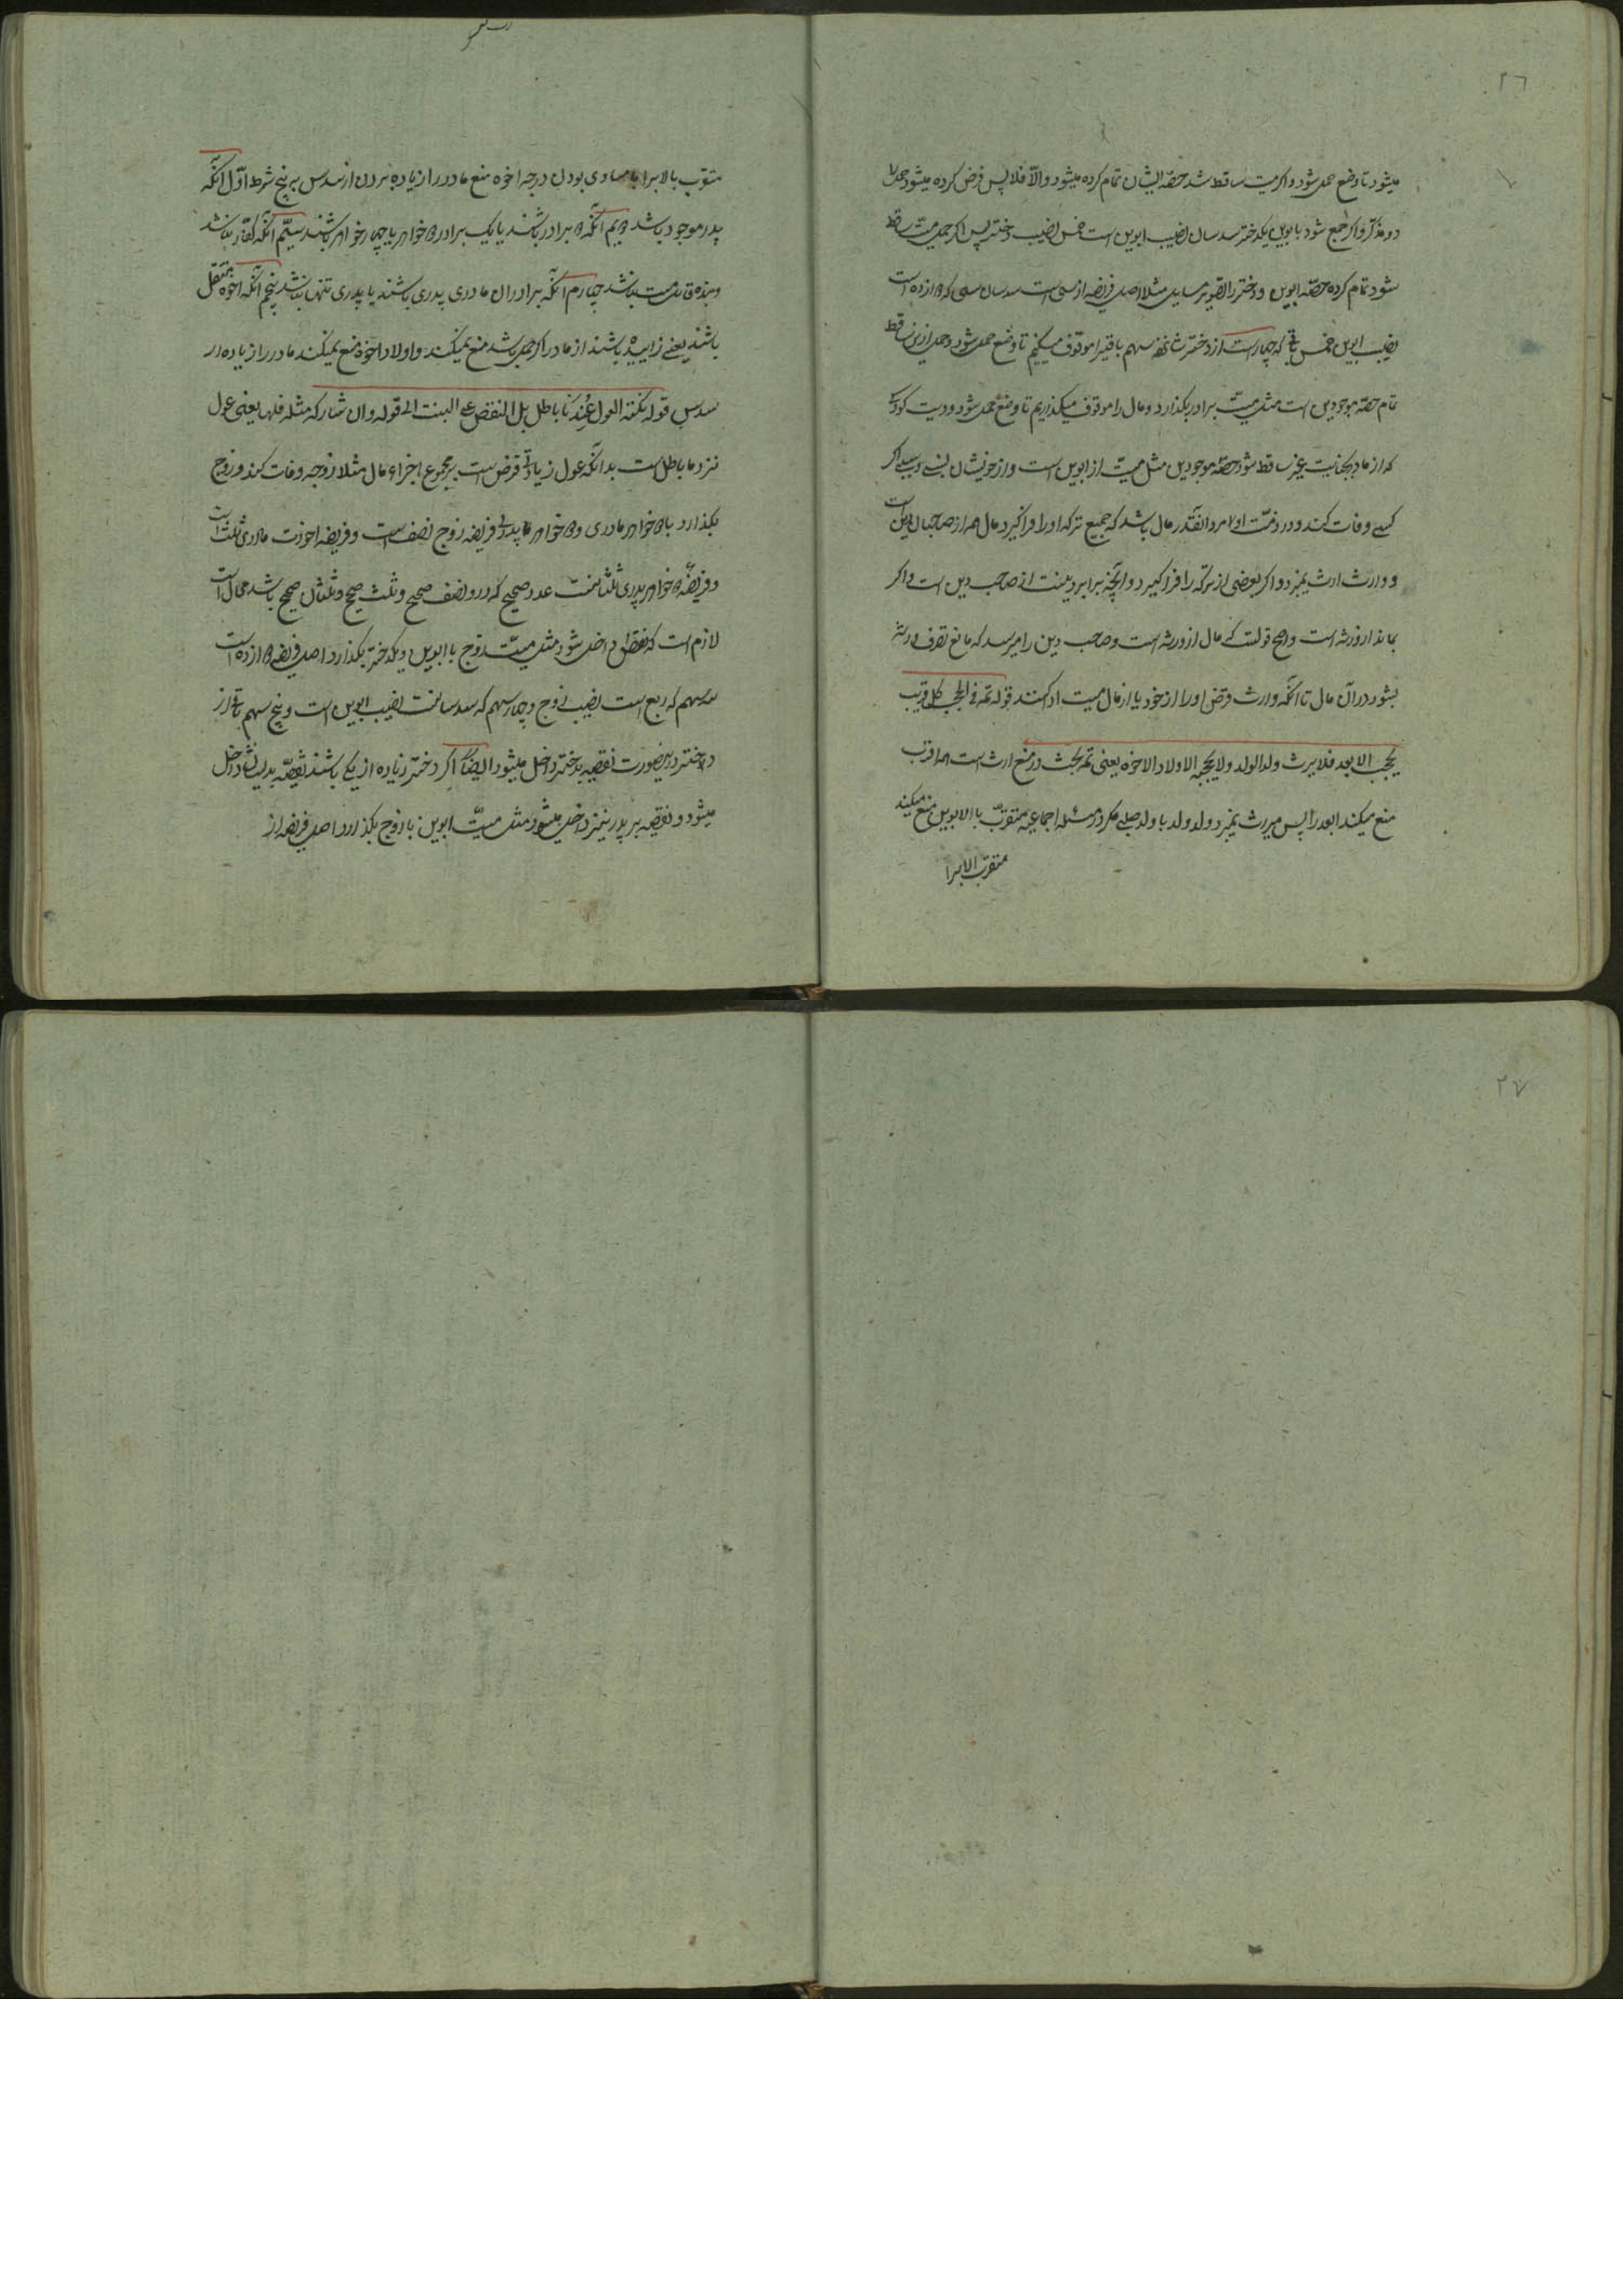 ٢٦
میشود تا وضع حمل شود و اکر میت ساقط شد حصه ایشان تمام کرده میشود والّا فلا پس فرض کرده میشود حمل
دو مذکر و اکر جمع شود با ابوین یکدختر سدسان نصیب ابوین است خمس نصیب دختر پس اکر حمل میت ساقط
شود تمام کرده حصه ابوین و دختر را مثلا اصل فریضه از سی است سدسان سی که ده است
نصیب ابوین خمس که چهار است از دختر سهم باقی را موقوف میکنیم تا وضع حمل شود
تمام حصه موجودین است مثل میت برادر بکذارد و مال را موقوف میکذاریم تا وضع حمل شود و دیت کودکی
که از مادر بجنایت غیر ساقط شود حصه موجودین مثل میت از ابوین است و از خویشان اکر
کسی وفات کند و در ذمت او انقدر مال باشد که جمیع ترکه او را فرا کیرد مال همه از صاحبان دین است
و وارث ارث نمیبرد و اکر بعضی از ترکه را فرا کیرد و آنچه برابر دینست از صاحب دین است و اکر
بماند از ورثه است و اصح قولست که مال از ورثه است و صاحب دین را میرسد که مانع تصرف ورثه
بشود در آن مال تا آنکه وارث قرض او را از خود یا از مال میت ادا کنند قوله تمه فی الحجب کل اقرب
یحجب الابعد فلا یرث ولد الولد ولا یحجبه الاولاد الاخوه یعنی تمه بحث در منع ارث است هر اقرب
منع میکند ابعد را پس میراث نمیبرد ولد ولد با ولد صلبی مکر در مسئله اجماعیه متقرب بالابوین منع میکند
متقرب الابرا
متقرب بالاب را با مساوی بودن درجه اخوه منع مادر را از زیاده بردن از سدس بر پنج شرط اوّل آنکه
پدر موجود باشد دویم آنکه دو برادر باشند یا یک برادر و دو خواهر یا چهار خواهر باشند سیّم آنکه کفار نباشند
و بنده و قاتل میت نباشد چهارم آنکه برادران مادری پدری باشند یا پدری تنها باشند پنجم آنکه اخوه منفصل
باشند یعنی زاییده باشند از مادر اکر حمل باشد منع نمیکند و اولاد اخوه منع نمیکند مادر را از زیاده از
سدس قوله تکمله العول عندنا باطل بل النقص علی البنت الی قوله وان شارکه مثله فلها یعنی عول
نزد ما باطل است بدانکه عول زیادتی فرض است بر مجموع اجزاء مال مثلا زوجه وفات کند و زوج
بکذارد با دو خواهر مادری و دو خواهر پدری فریضه زوج نصف است و فریضه اخوت مادری ثلث است
و فریضه دو خواهر پدری ثلثانست عدد صحیح که درو نصف صحیح و ثلث صحیح و ثلثان صحیح باشد محال است
لازم است که نقص داخل شود مثل میت زوج با ابوین و یکدختر بکذارد اصل فریضه دوازده است
سه سهم که ربع است نصیب زوج و چهار سهم که سدسانست نصیب ابوین است و پنج سهم باقی از
دختر درینصورت نقیصه بدختر داخل میشود ایضا اکر دختر زیاده از یکی باشند نقیصه بدیشان داخل
میشود و نقیصه بر پدر نیز داخل میشود مثل میّت ابوین با زوج بکذارد اصل فریضه از
٢٧